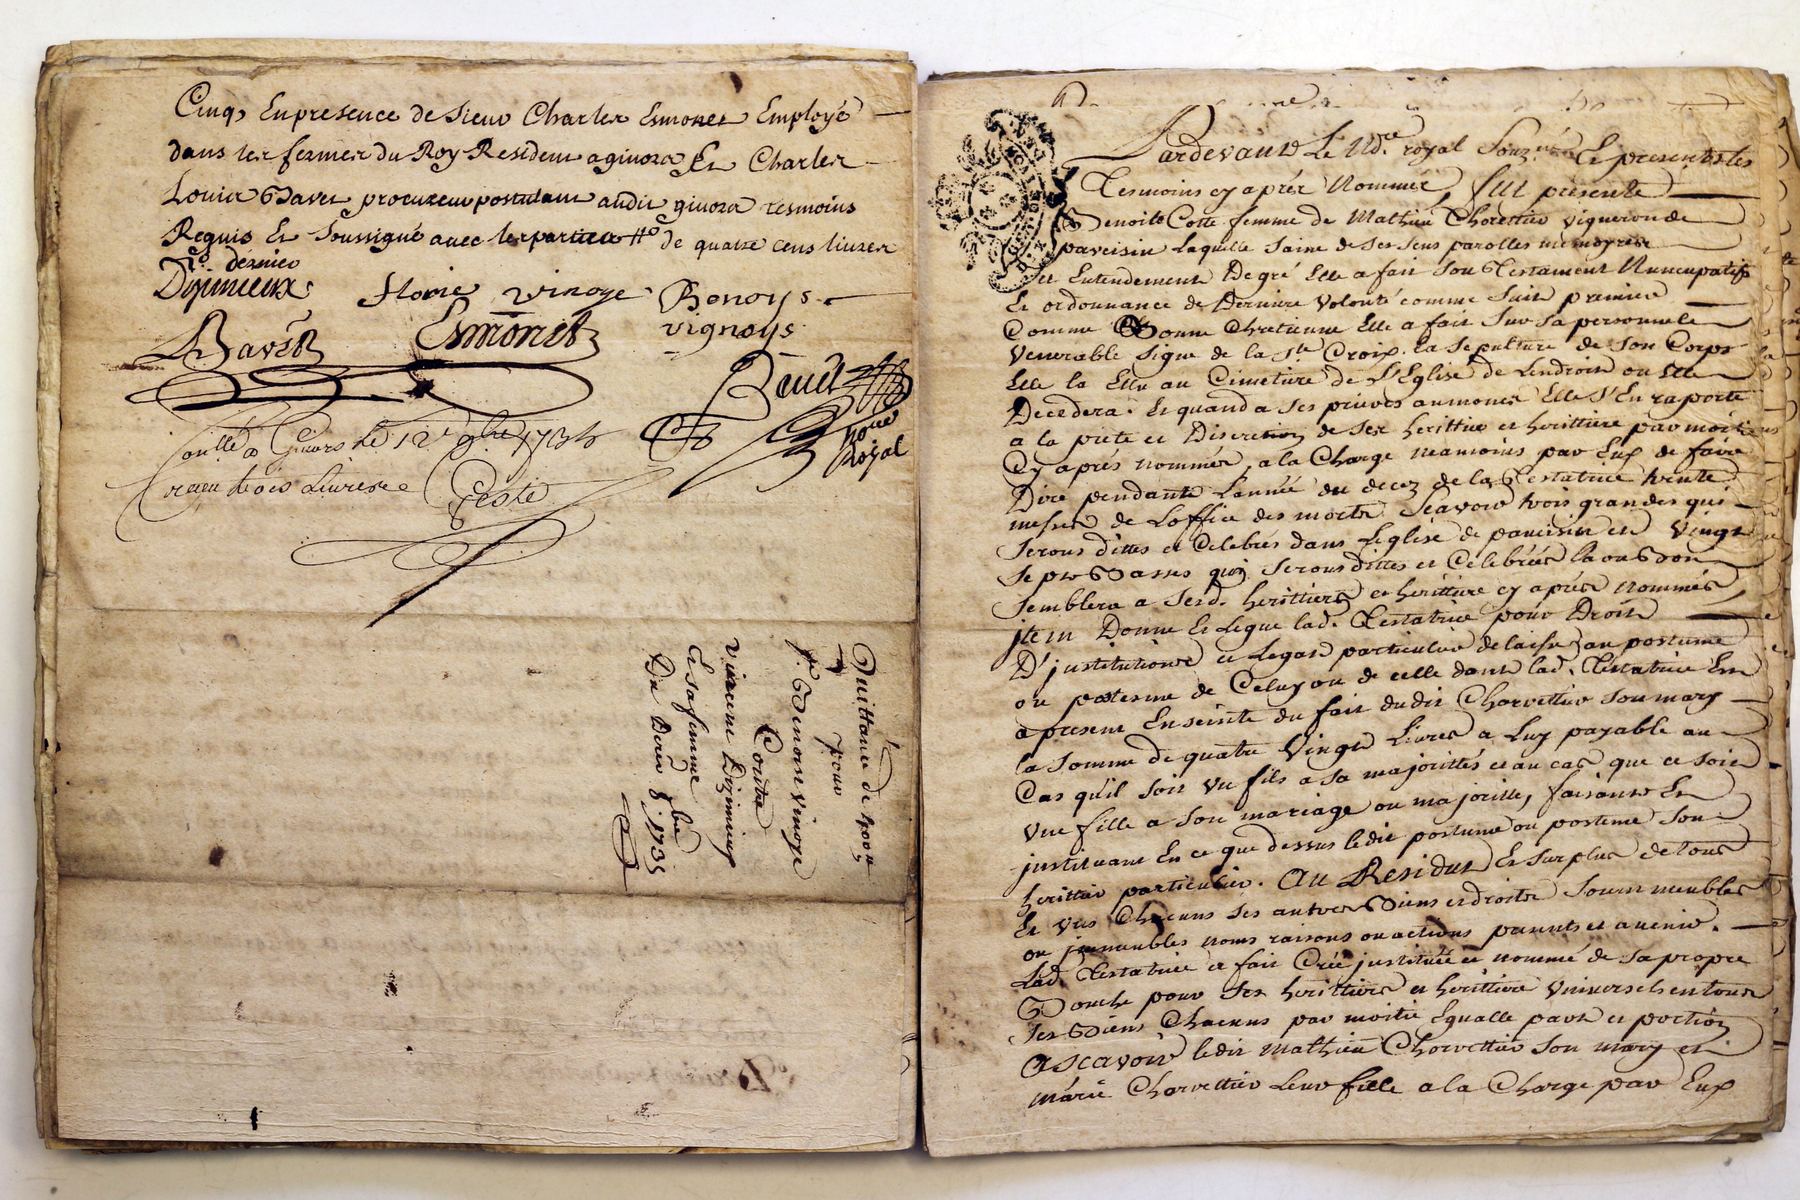 Cinq En presence de Sieur Charles Esmonet Employé
dans les fermes du Roy Resident a givors Et Charles
Louis Bavet procureur postulant audit givors tesmoins
Requis Et Soussigné avec les parties de quatre cens livres
dernier
Dizinieux florie vinoye Benoys
vignoys
Bavet Esmonet
Bruet
Noре
Royal
Conllé a Givors le 12e 9bre 1735
Reçeu trois Livres
Quittance de 400
pour
Benoist vinoye
Contre
vincent Dizinieux
Et sa femme
Du Dern 8bre 1735
Pardevant Le No.re royal Souz.né Et presents les
Tesmoins cy aprés Nommés, fut presente
Benoite Cotte femme de Mathieu Chorettier vigneron de
paveisin Laquelle Saine de Ses Sens parolles memoyres
et Entendement De gré Elle a fait Son Testament Nuncupatif
Et ordonnance de Derniere volonté comme Suit premier
Comme Bonne Chretienne Elle a fait Sur Sa personne le
Venerable Signe de la Ste Croix. la Sepulture de Son Corps
Elle la Elu au Cimetiere de L'Eglise de Lendroit ou Elle
Decedera. Et quand a Ses prieres aumones Elle S'En raporte
a la pieté et Discretion de Ses herittier et herittiere par moitié
Cy aprés nommés, a la Charge neamoins par Eux de faire
Dire pendant L'année du decez de la Testatrice trente
messes de Loffice des morts Scavoir trois grandes qui
Seront dittes et Celebrés dans Leglise de paveisin et Vingt
Sept Basses qui Seront dittes et Celebrées la ou Bon
Semblera a Sesd. herittiers et herittiere cy aprés nommés
jtem Donne Et Legue lad. Testatrice pour Droit
D'justitutions et Legat particulier delaisse au postume
ou posteme de Celuy ou de celle dont lad. Testatrice Est
a present Enseinte du fait dudit Chorettier Son mary
la Somme de quatre Vingt Livres a Luy payable au
Cas qu'il Soit Un fils a Sa majorittés et au cas que ce Soit
Une fille a Son mariage ou majoritte, faisant Et
justituant En ce que dessus ledit postume ou posteme Son
herittier particulier. Au Residut Et Surplus de tous
Et Uns Chacuns Ses autres Biens et droits Soient meubles
ou jmmeubles noms raisons ou actions presents et avenir.
Lad. Testatrice a fait Crée justitué et nommé de Sa propre
Bouche pour Ses herittiers et herittiere Universels en tous
Ses Biens Chacuns par moitié Equalle part et portion
Ascavoir ledit Mathieu Chorettier Son mary et
Marie Chorettier Leur fille a la Charge par Eux